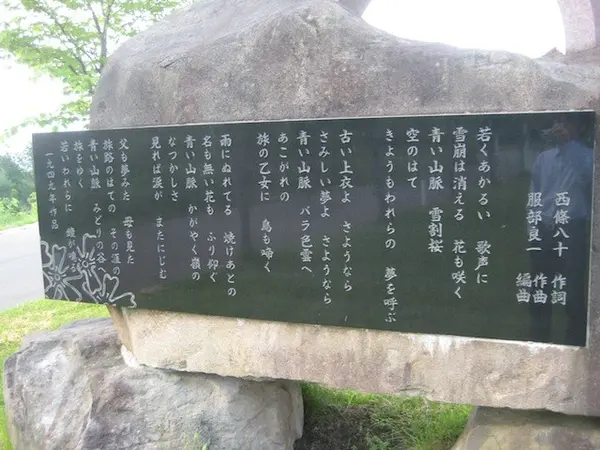 西條八十 作詞
服部良一 作曲
編曲
若くあかるい 歌声に
雪崩は消える 花も咲く
青い山脈 雪割桜
空のはて
きょうもわれらの 夢を呼ぶ
古い上衣よ さようなら
さみしい夢よ さようなら
青い山脈 バラ色雲へ
あこがれの
旅の乙女に 鳥も啼く
雨にぬれてる 焼けあとの
名も無い花も ふり仰ぐ
青い山脈 かがやく嶺の
なつかしさ
見れば涙が またにじむ
父も夢みた 母も見た
旅路のはての その涯の
青い山脈 みどりの谷へ
旅をゆく
若いわれらに 鐘が鳴る
一九四九年作品